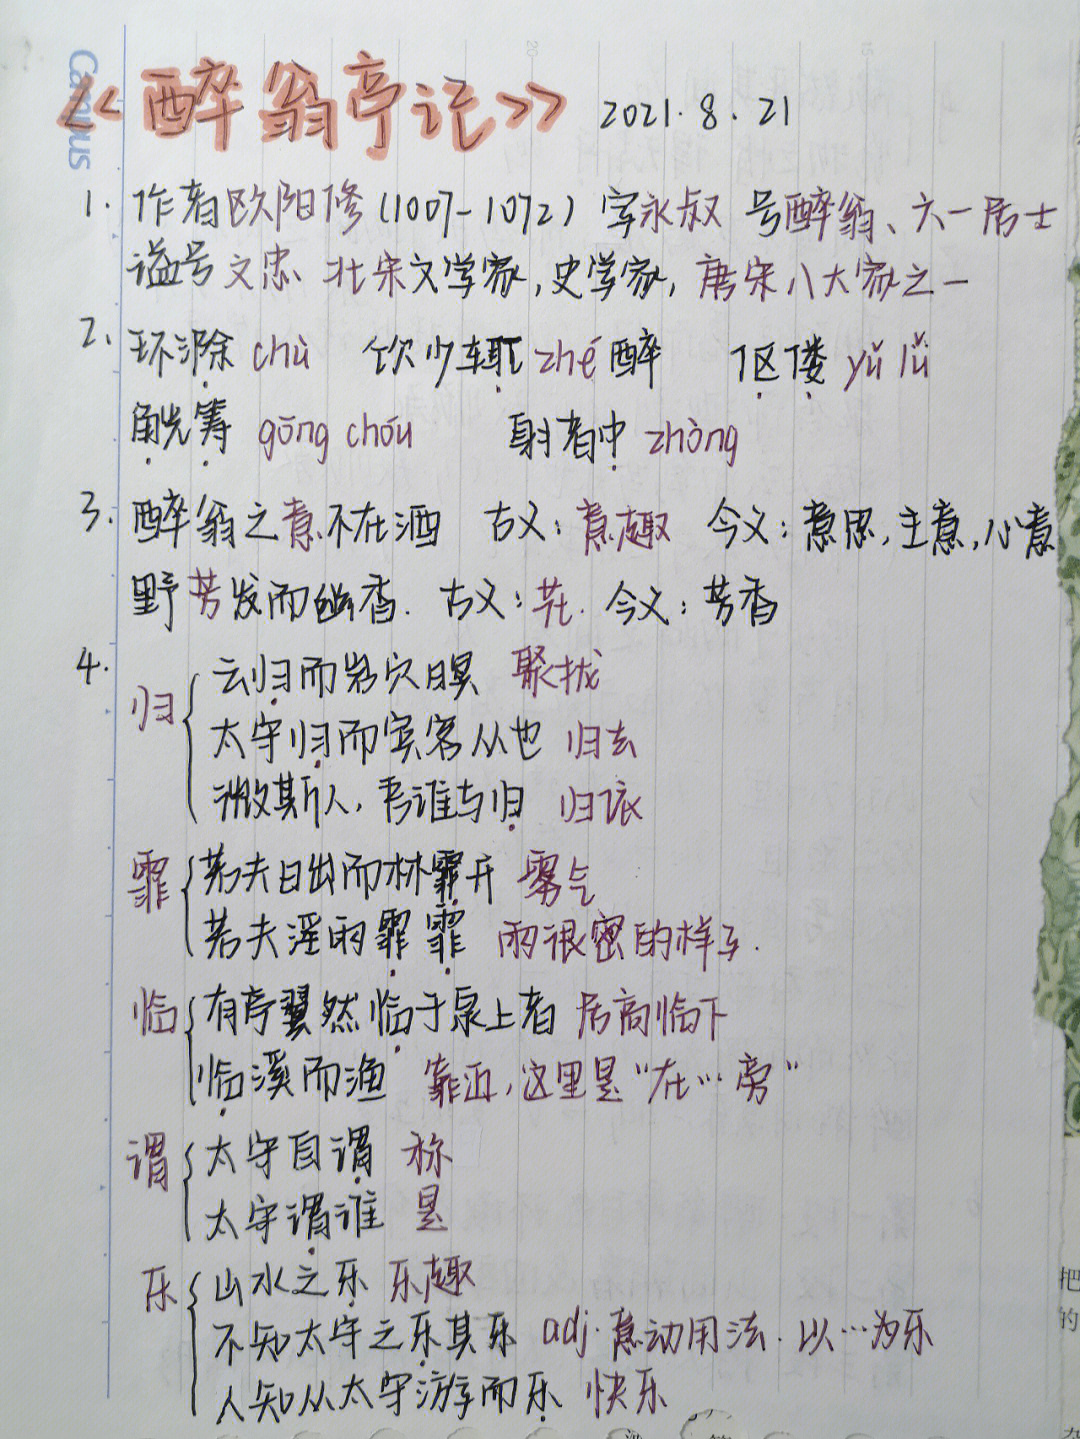 Campus
《醉翁亭记》 2021.8.21
1. 作者欧阳修(1007-1072) 字永叔 号醉翁、六一居士
谥号文忠 北宋文学家,史学家,唐宋八大家之一
2. 环滁chú 饮少辄zhé醉 伛偻yǔ lǚ
觥筹gōng chóu 射者中zhòng
3. 醉翁之意不在酒 古义:意趣 今义:意思,主意,心意
野芳发而幽香. 古义:花. 今义:芳香
4.
归 云归而岩穴暝 聚拢
太守归而宾客从也 归去
微斯人,吾谁与归 归依
霏 若夫日出而林霏开 雾气
若夫淫雨霏霏 雨很密的样子.
临 有亭翼然临于泉上者 居高临下
临溪而渔 靠近,这里是“在…旁”
谓 太守自谓 称
太守谓谁 是
乐 山水之乐 乐趣
不知太守之乐其乐 adj.意动用法.以…为乐
人知从太守游而乐 快乐
把
的